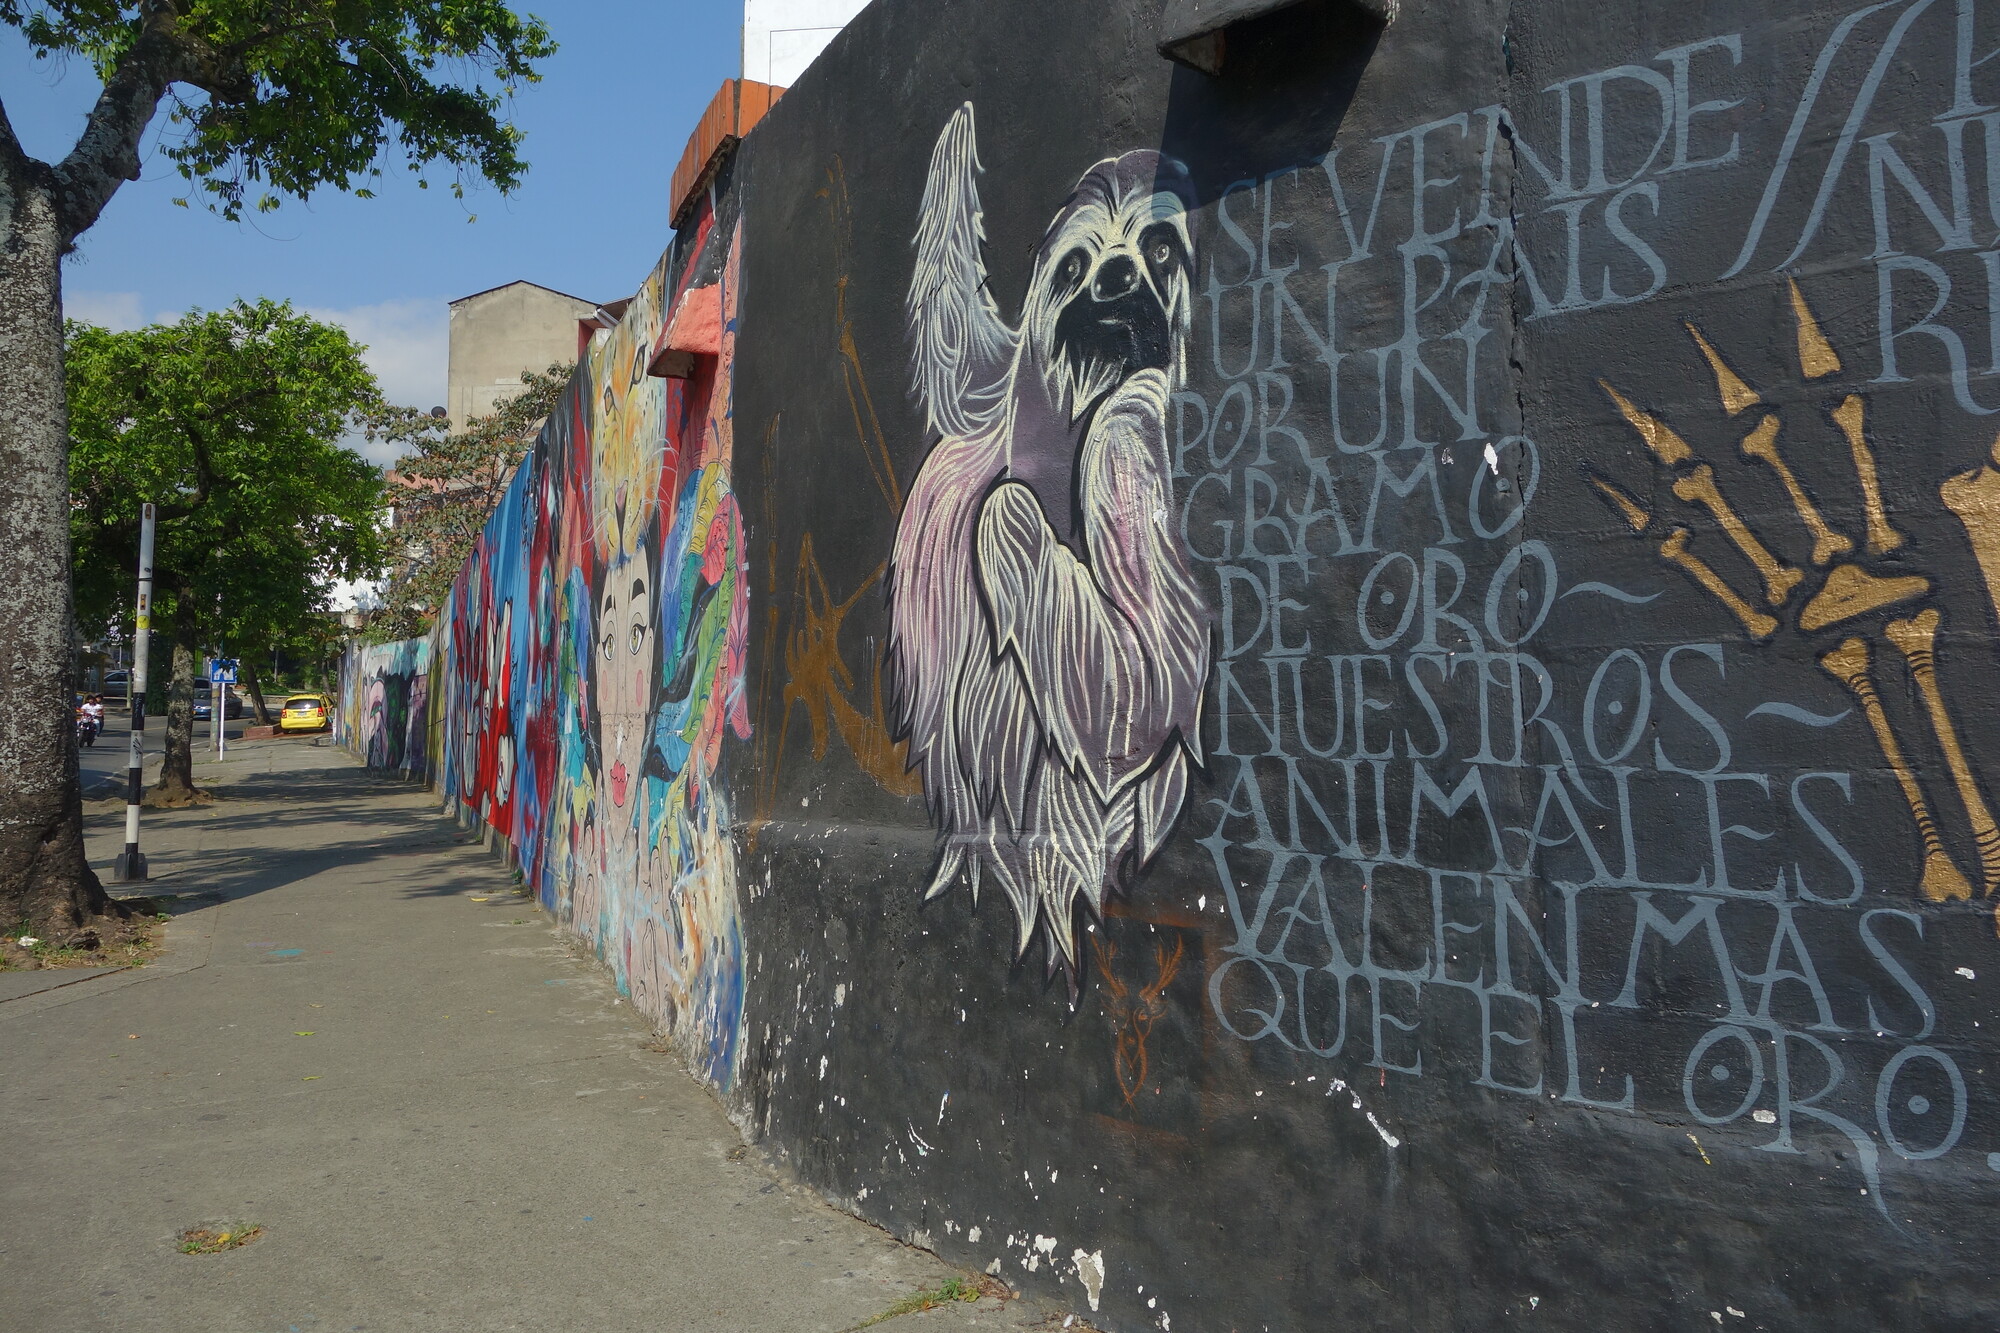 SE VENDE //
UN PAIS
POR UN
GRAMO
DE ORO ~
NUESTROS ~
ANIMALES
VALEN MAS
QUE EL ORO.